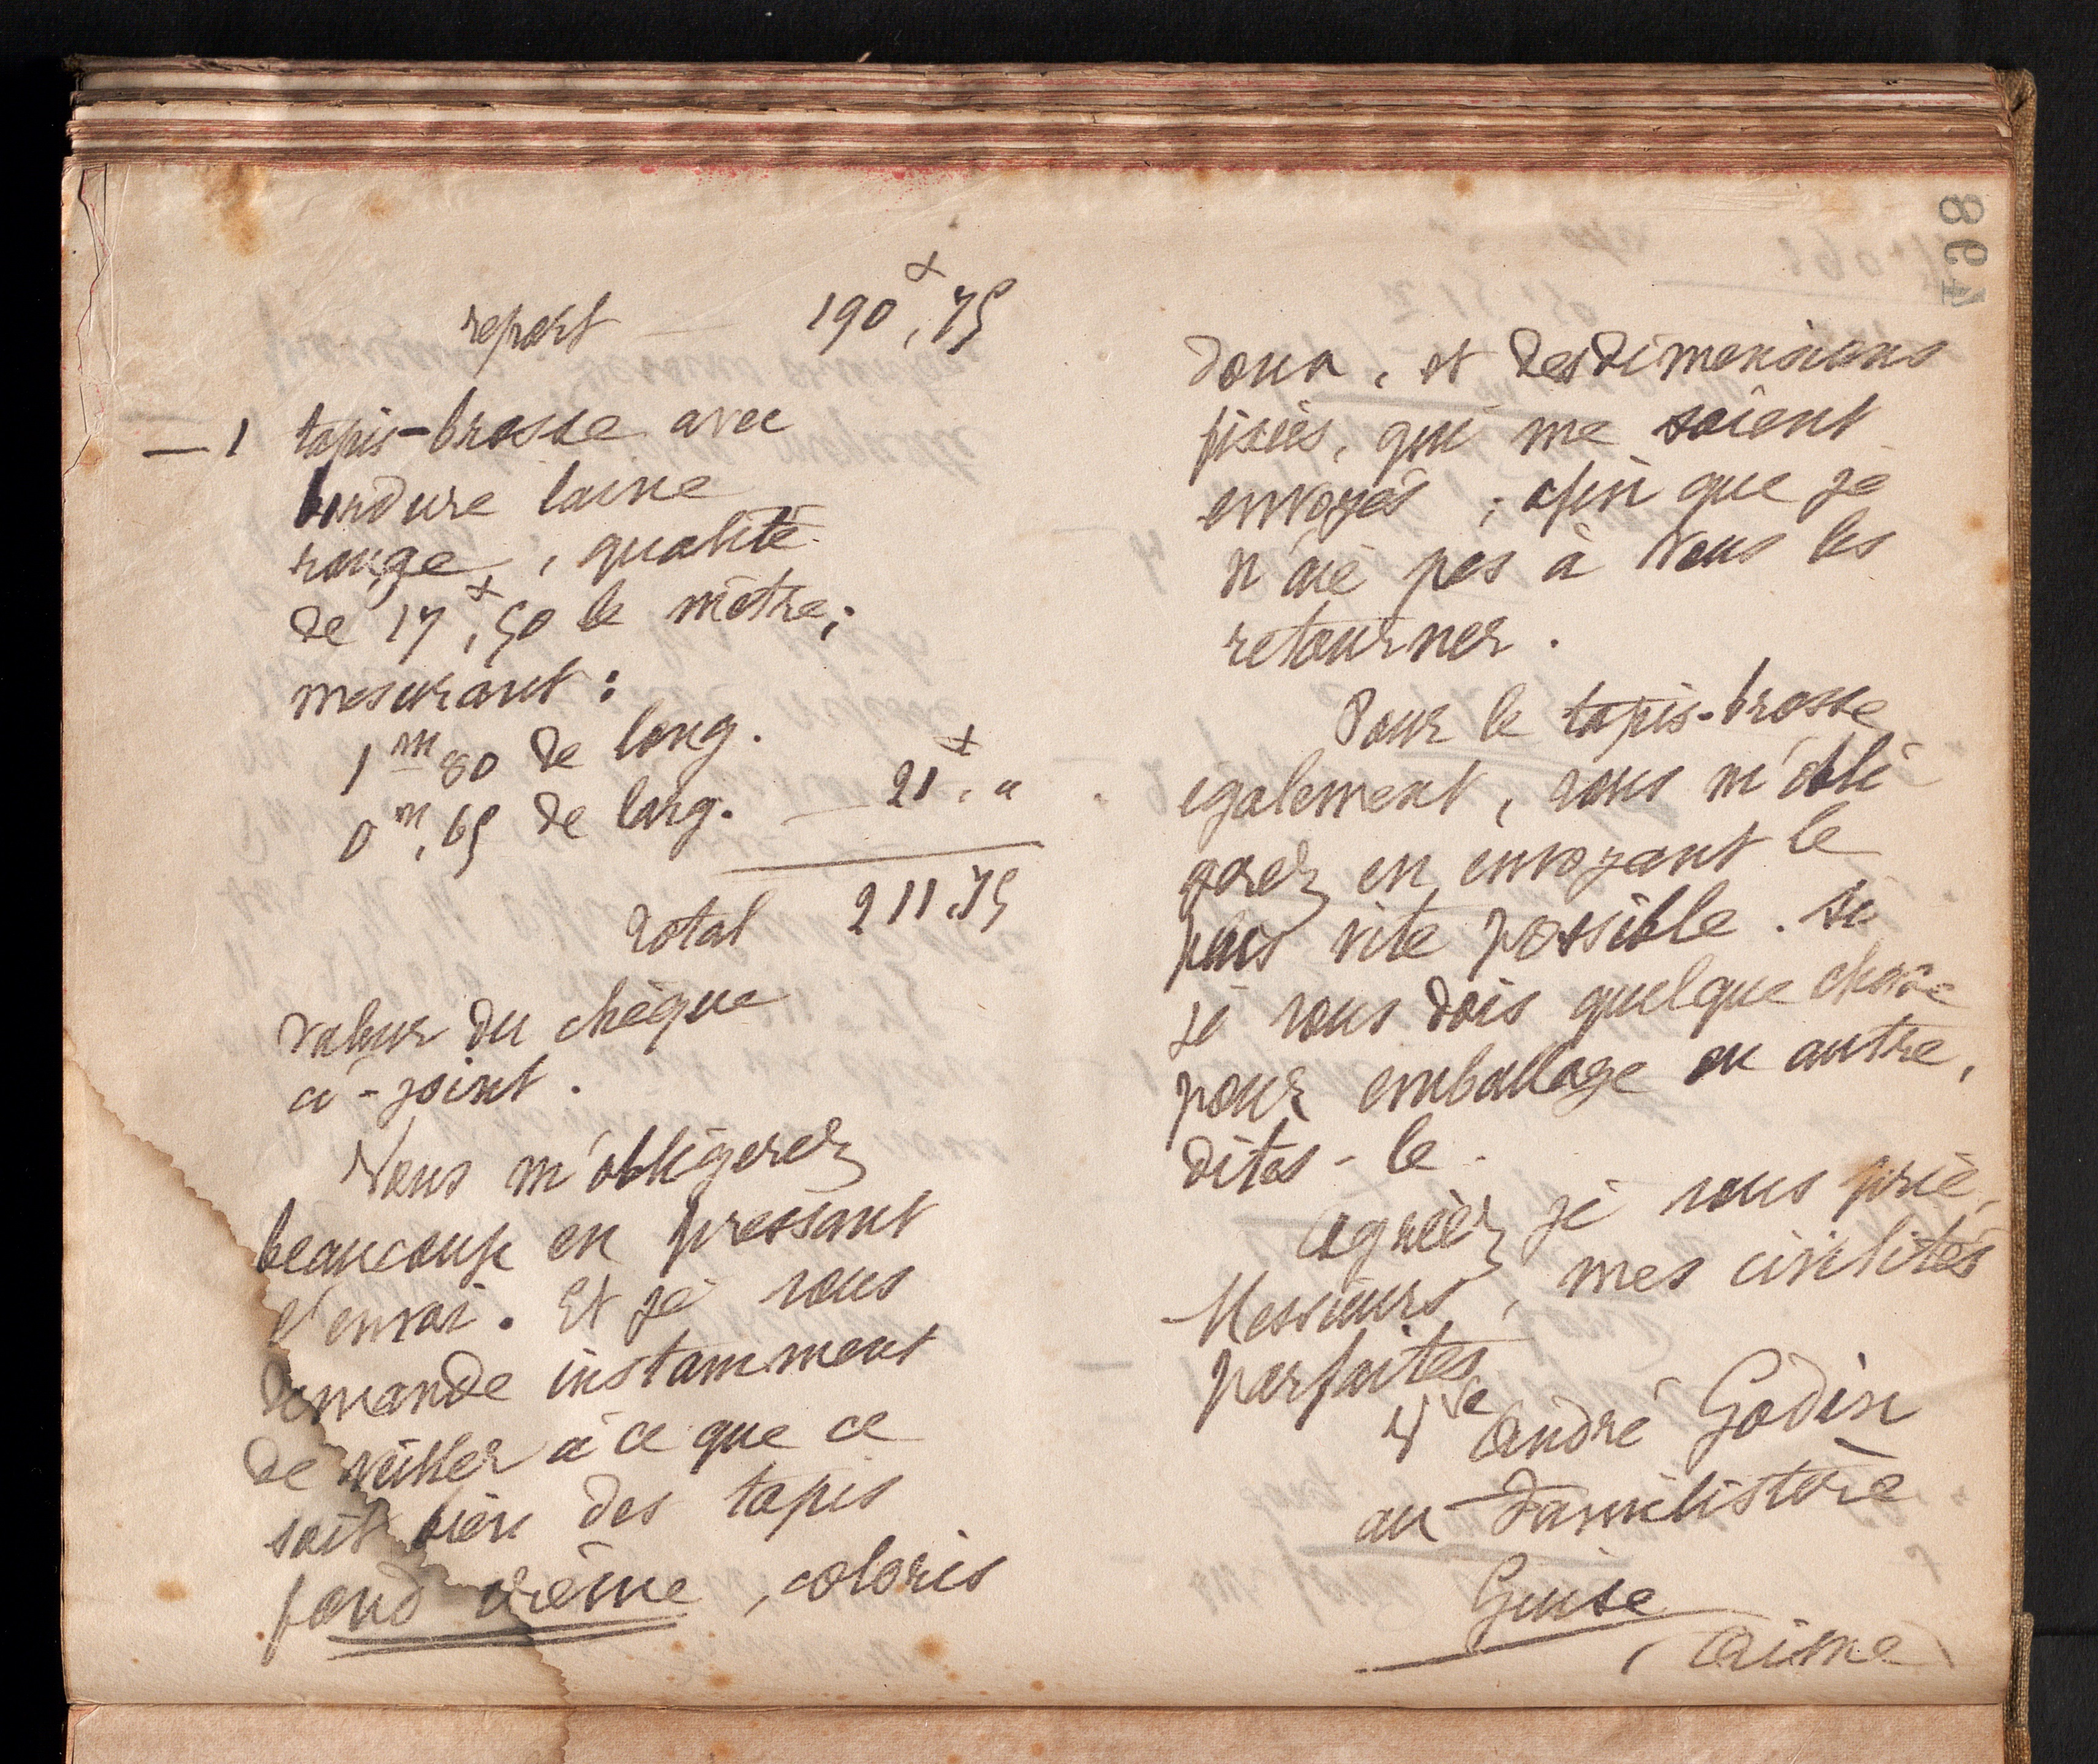 report — 190f,75
— 1 tapis-brosse avec
bordure laine
rouge, qualité
de 17f,50 le mètre;
mesurant :
1m80 de long.
0m,65 de larg. — 21f, "
Total 211,75
valeur du chèque
ci-joint.
Vous m'obligerez
beaucoup en pressant
l'envoi. Et je vous
demande instamment
de veiller à ce que ce
soit bien des tapis
fond crème, coloris
498
doux, et des dimensions
fixées, qui me soient
envoyés ; afin que je
n'aie pas à vous les
retourner.
Pour le tapis-brosse
également, vous m'obli-
gerez en envoyant le
plus vite possible. Si
je vous dois quelque chose
pour emballage ou autre,
dites-le.
Agréez, je vous prie,
Messieurs, mes civilités
parfaites
Vve André Godin
au Familistère
Guise
(Aisne)